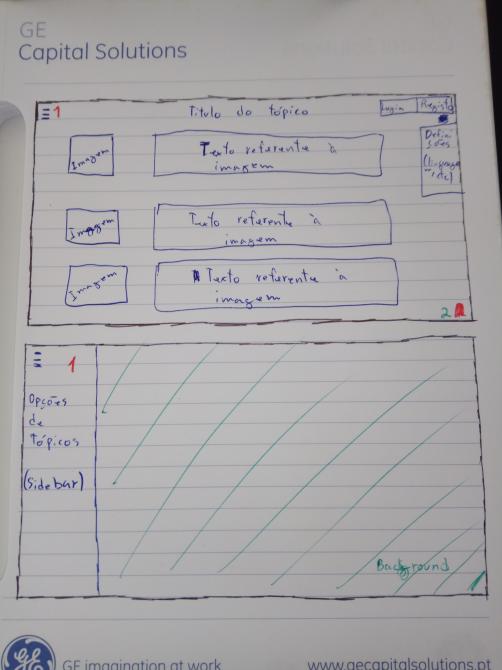 GE
Capital Solutions
1
Titulo do tópico
Login
Registo
Imagem
Texto referente à
imagem
Imagem
Texto referente à
imagem
Imagem
Texto referente à
imagem
2
1
Opções
de
tópicos
(sidebar)
Background
GE imagination at work
www.gecapitalsolutions.pt